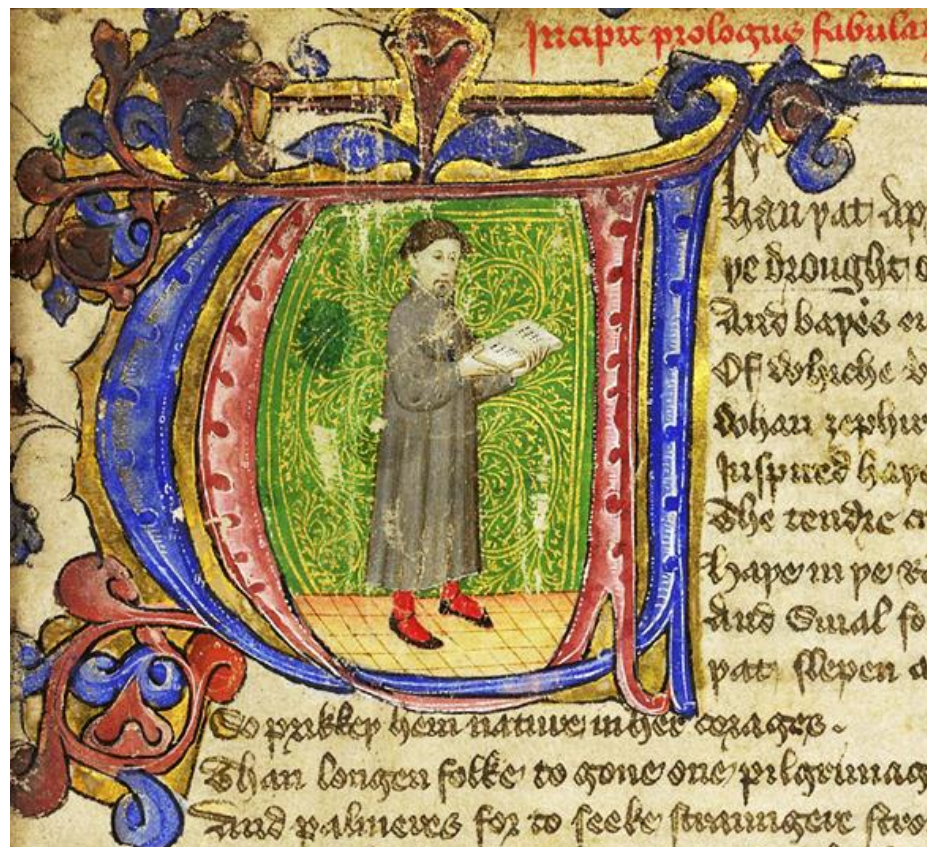 Incipit prologus fabular
Whan þat Ap
þe drought o
And baþes eu
Of whiche v
Whan zephir
Inspired haþe
The tendre c
haþe in þe R
And Smal fo
þat slepen a
So prikkeþ hem nature in her corages.
Than longen folke to gone one pilgrimag
And palmeres for to seeke straungere stro